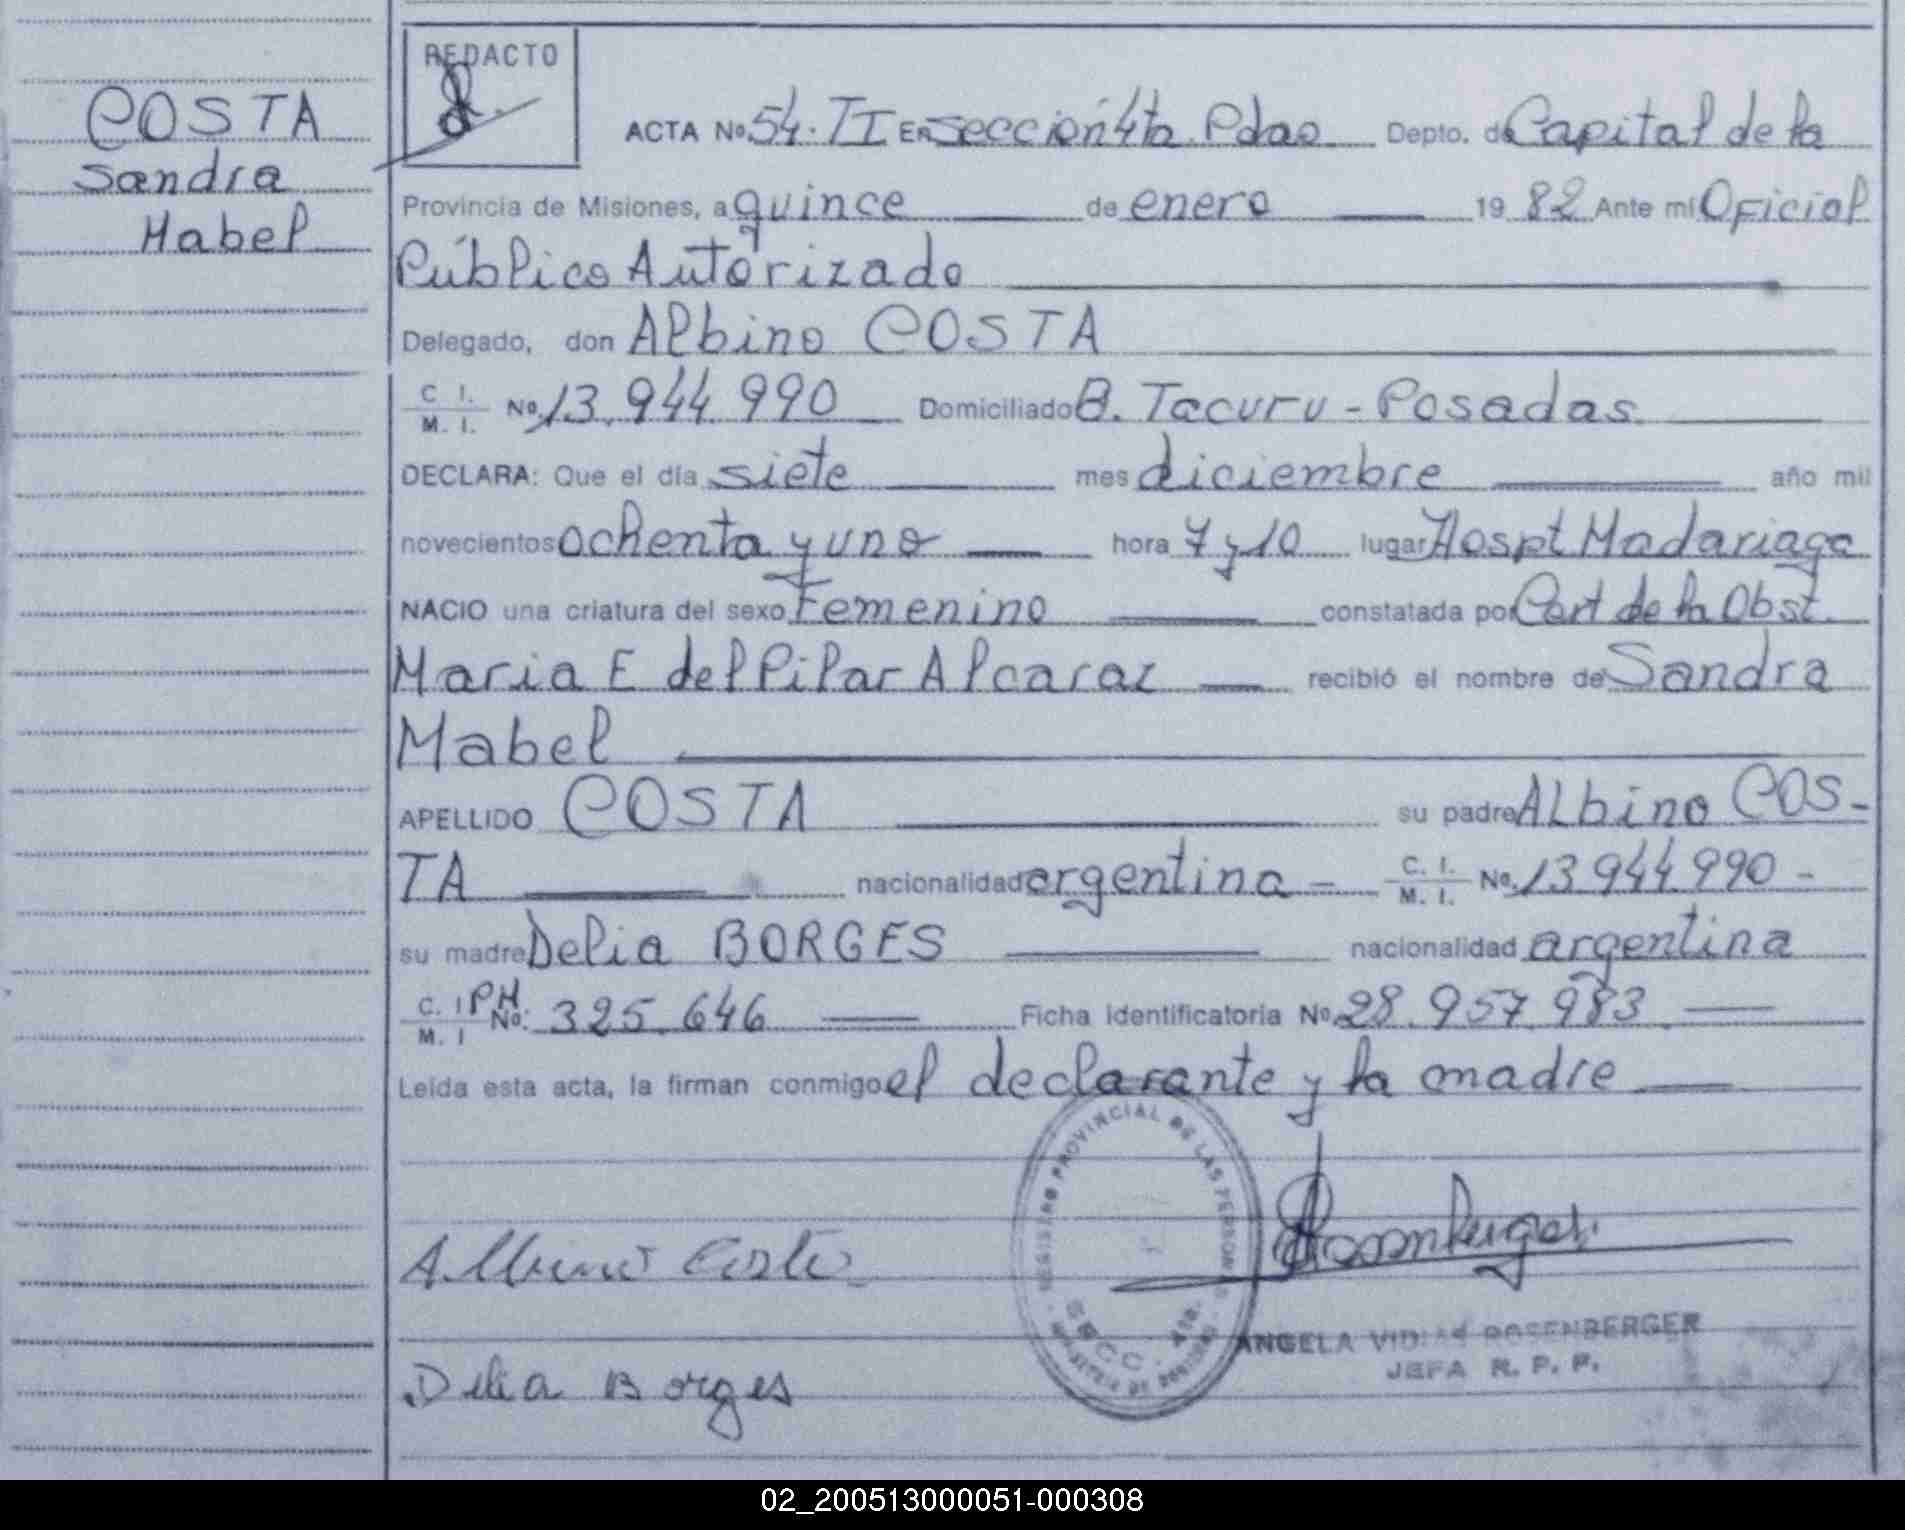 COSTA
Sandra
Mabel
REDACTO
ACTA No 54. II En sección 4ta. Pdas. Depto. de Capital de la
Provincia de Misiones, a quince de enero 19 82 Ante mi Oficial
Público Autorizado
Delegado, don Albino COSTA
C. I. M. I. No. 13.944.990 Domiciliado B. Tacuru - Posadas
DECLARA: Que el día siete mes diciembre año mil
novecientos ochenta y uno hora 7 y 10 lugar Hospt Madariaga
NACIO una criatura del sexo Femenino constatada por Cert de la Obst.
Maria E del Pilar Alcaraz recibió el nombre de Sandra
Mabel
APELLIDO COSTA su padre Albino COS-
TA nacionalidad argentina - C. I. M. I. No. 13.944.990 -
su madre Delia BORGES nacionalidad argentina
C. I. M. I PH No. 325.646 Ficha Identificatoria No 28.957.983
Leída esta acta, la firman conmigo el declarante y la madre
REGISTRO PROVINCIAL DE LAS PERSONAS
SECC. 4ta.
Albino Costa
ANGELA ROSENBERGER
JEFA R. P. P.
Delia Borges
02_200513000051-000308